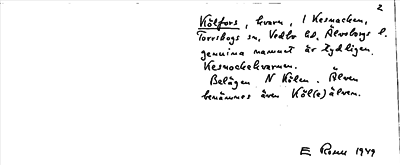 2
Kölfors, kvarn, i Kesnacken,
Torrskogs sn, Vedbo hd, Älvsborgs l.
genuina namnet är tydligen
Kesnackekvarnen.
Belägen N Kölen. Älven
benämnes även Köl(e)älven.
E Rosell 1949